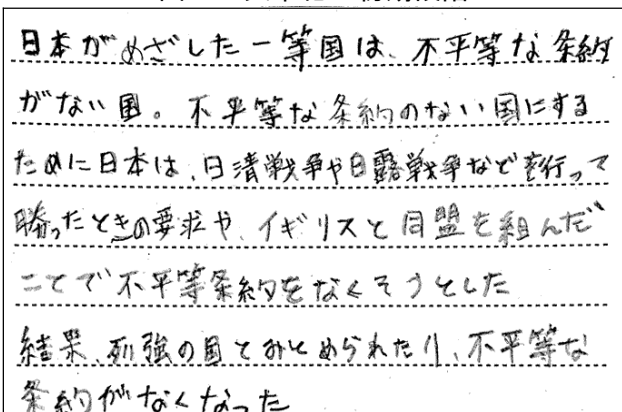 日本がめざした一等国は、不平等な条約
がない国。不平等な条約のない国にする
ために日本は、日清戦争や日露戦争などを行って
勝ったときの要求や、イギリスと同盟を組んだ
ことで不平等条約をなくそうとした
結果、列強の国とみとめられたり、不平等な
条約がなくなった